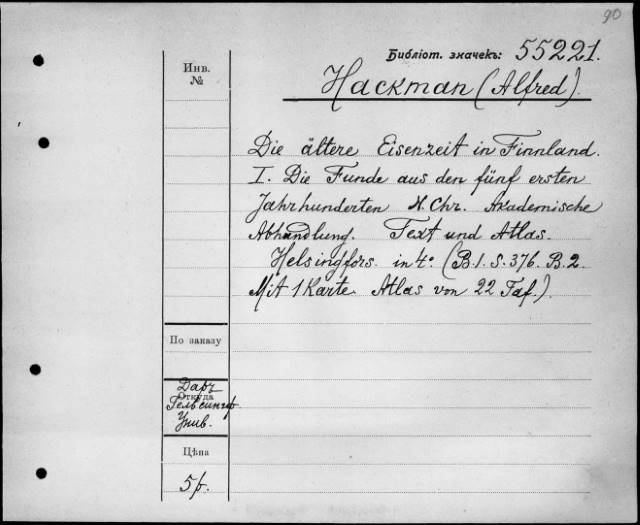 90
Библіот. значекъ: 55221.
Инв.
№
Hackman (Alfred).
Die ältere Eisenzeit in Finnland.
I. Die Funde aus den fünf ersten
Jahrhunderten N. Chr. Akademische
Abhandlung. Text und Atlas.
Helsingfors. in 4° (B.1. S. 376. B. 2.
Mit 1 Karte. Atlas von 22 Taf.).
По заказу
Даръ
Откуда
Гельсингф.
Унив.
Цѣна
5 р.